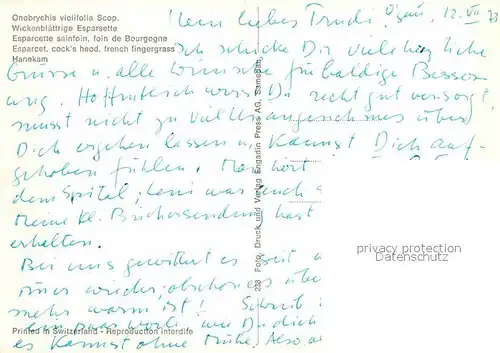 Onobrychis viciifolia Scop.
Wickenblättrige Esparsette
Esparcette sainfoin, foin de Bourgogne
Esparcet, cock's head, french fingergrass
Hanekam
Mein liebes Trudi! 12. VII 73
Ich schicke Dir viele herzliche
Grüsse u. alle Wünsche für baldige Besse-
rung. Hoffentlich wirst Du recht gut versorgt,
musst nicht zu viel Unangenehmes über
Dich ergehen lassen u. kannst Dich auf-
gehoben fühlen. Man hört
dem Spital, Leni war auch
Meine kl. Büchersendung hast
erhalten.
Bei uns gewittert es seit
immer wieder, obschon es
mehr warm ist! Schreib
ein paar Worte, wie Du dich
es kannst ohne Mühe. Also,
233 Foto, Druck und Verlag Engadin Press AG, Samedan
privacy protection
Datenschutz
Printed in Switzerland - Reproduction interdite